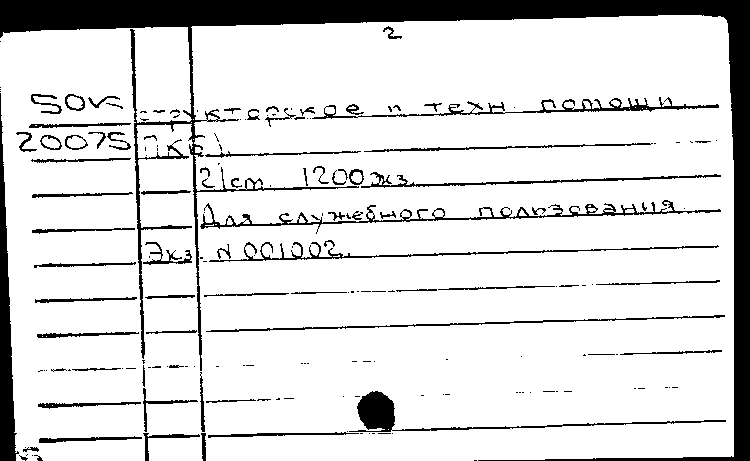 2
50К структорское и техн. помощи
20075 ПКБ).
21 ст. 1200 экз.
Для служебного пользования
Экз. N 001002.